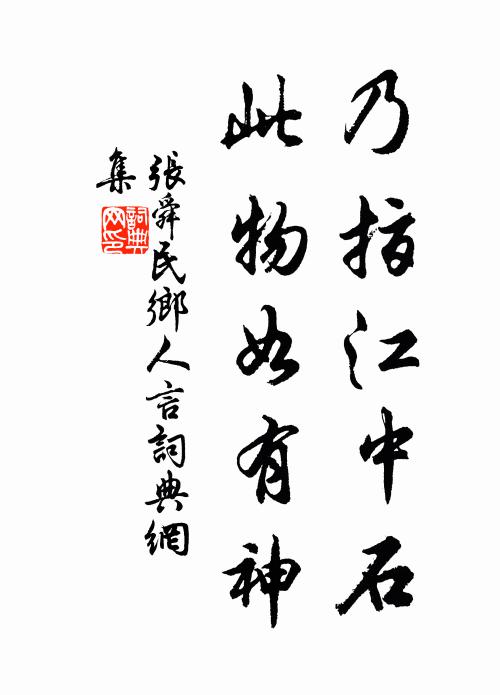 乃指江中石
此物如有神
張舜民鄉人言詞典網
集
詞典
网印